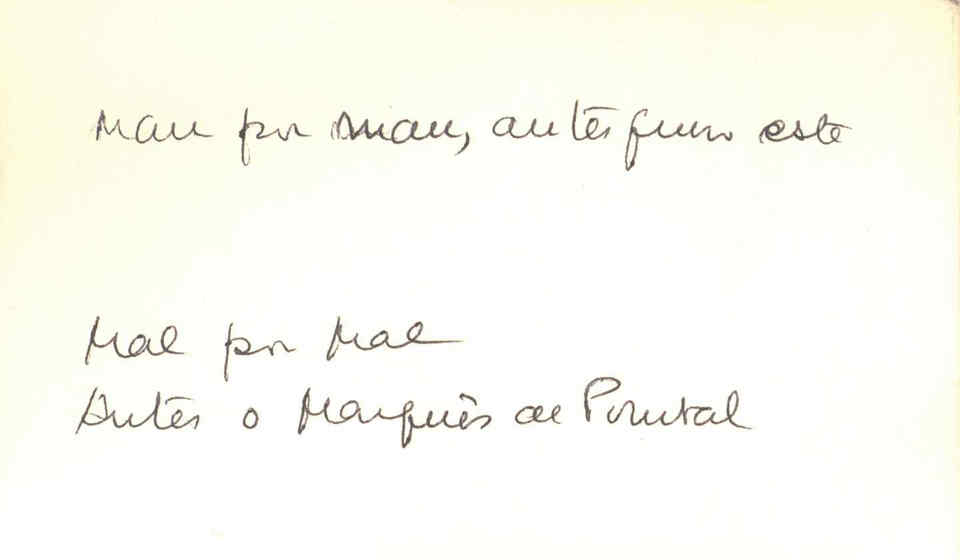 Mau por mau, antes quero este
Mal por Mal
Antes o Marquês de Pombal